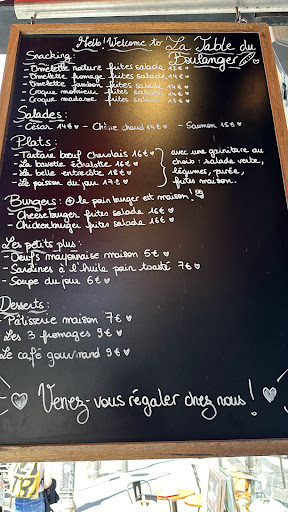 Hello! Welcome to La Table du
Boulanger
Snacking:
- Omelette nature frites salade 12 €
- Omelette fromage frites salade 14 €
- Omelette jambon frites salade 14 €
- Croque monsieur frites salade 14 €
- Croque madame frites salade 15 €
Salades:
- César 14 € - Chèvre chaud 14 € - Saumon 15 €
Plats:
- Tartare bœuf Charolais 16 €
- La bavette échalotte 16 €
- La belle entrecôte 18 €
- Le poisson du jour 17 €
avec une garniture au
choix: salade verte,
légumes, purée,
frites maison.
Burgers: le pain burger est maison!
- Cheeseburger frites salade 16 €
- Chickenburger frites salade 16 €
Les petits plus:
- Oeufs mayonnaise maison 5 €
- Sardines à l'huile pain toasté 7 €
- Soupe du jour 6 €
Desserts:
- Pâtisserie maison 7 €
- Les 3 fromages 9 €
Le café gourmand 9 €
Venez-vous régaler chez nous!